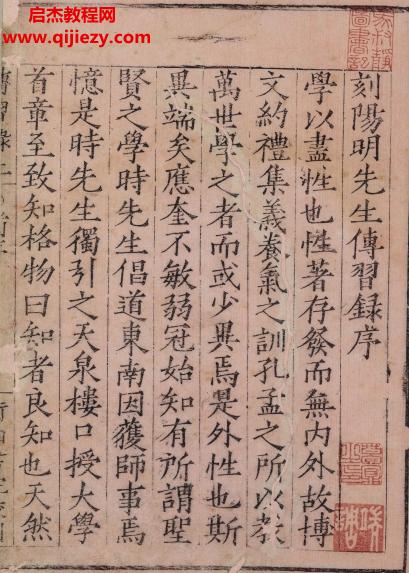 启杰教程网
www.qijiezy.com
刻陽明先生傳習録序
學以盡性也性著存發而無内外故博
文約禮集義養氣之訓孔孟之所以教
萬世學之者而或少異焉是外性也斯
異端矣應奎不敏弱冠始知有所謂聖
賢之學時先生倡道東南因獲師事焉
憶是時先生獨引之天泉樓口授大學
首章至致知格物曰知者良知也天然